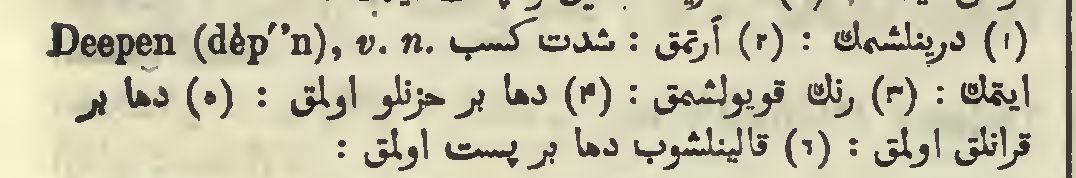 Deepen (dêp″n), v. n. (١) درينلشمك : (٢) آرتمق : شدت كسب
ايتمك : (٣) رنك قويولشمق : (۴) دها بر حزنلو اولمق : (٥) دها بر
قرانلق اولمق : (٦) قالينلشوب دها بر پست اولمق :